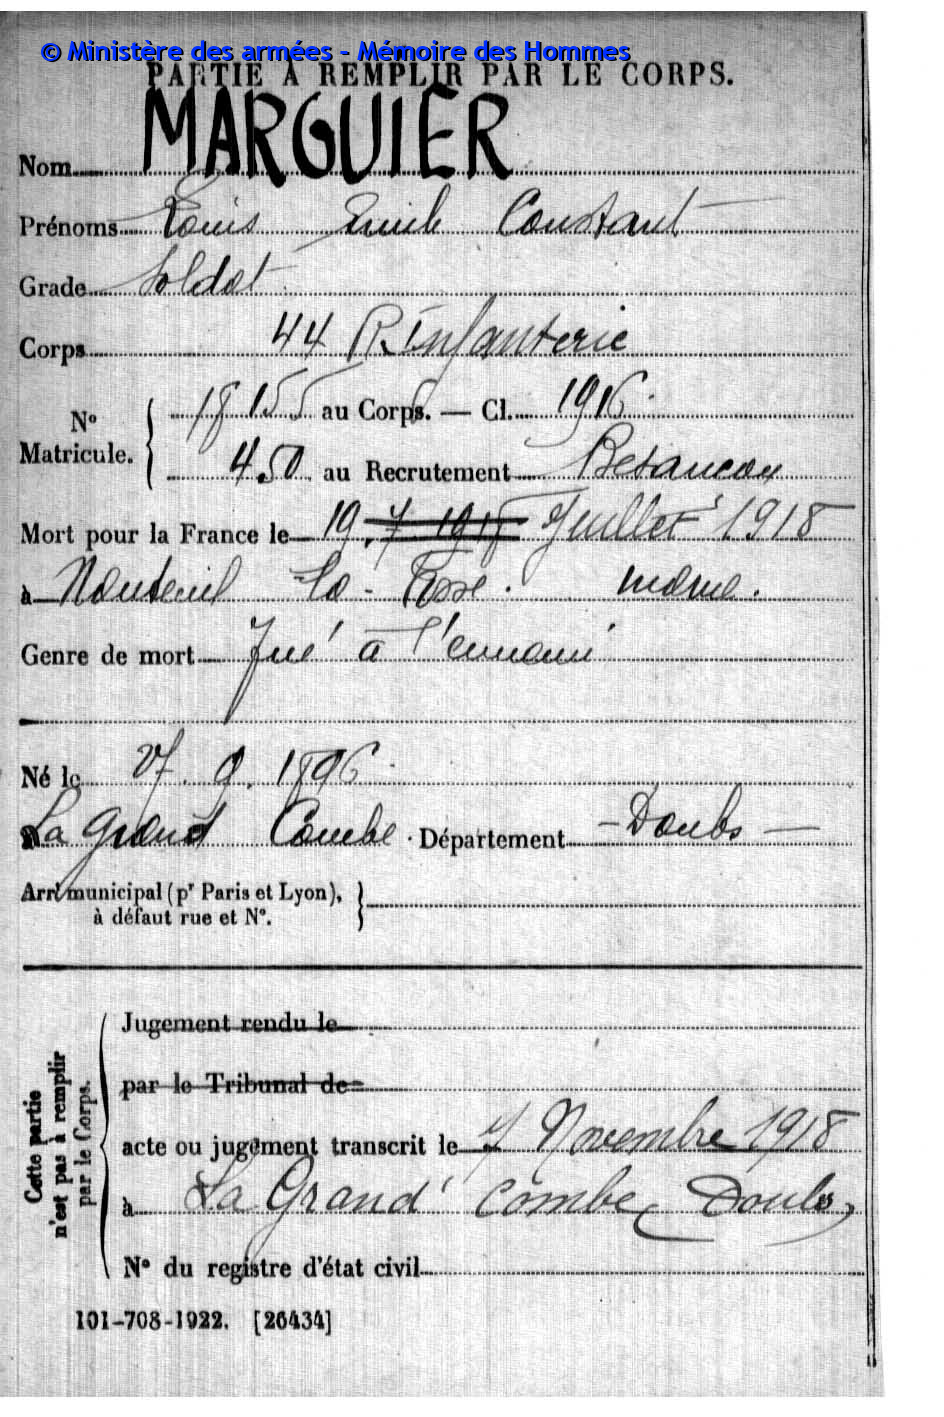 © Ministère des armées - Mémoire des Hommes
PARTIE À REMPLIR PAR LE CORPS.
Nom MARGUIER
Prénoms Louis Emile Constant
Grade Soldat
Corps 44 R. Infanterie
No Matricule. { 18155 au Corps. — Cl. 1916
450 au Recrutement Besancon
Mort pour la France le 19. 7 1918 Juillet 1918
à Nanteuil la-Fosse. marne.
Genre de mort Tué à l'ennemi
Né le 27. 9. 1896
La Grand Combe. Département - Doubs -
Arrt municipal (pr Paris et Lyon), }
à défaut rue et No.
Cette partie
n'est pas à remplir
par le Corps.
Jugement rendu le
par le Tribunal de
acte ou jugement transcrit le 7 Novembre 1918
à La Grand' Combe (Doubs)
No du registre d'état civil
101-708-1922. [26434]